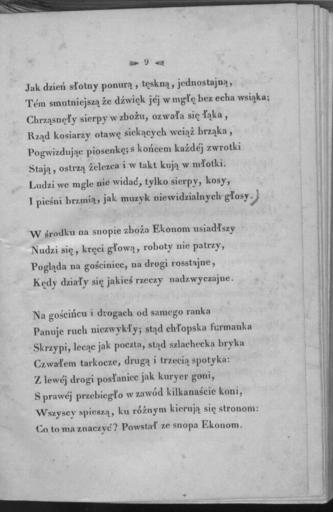 9
Jak dzień słotny ponurą, tęskną, jednostajną,
Tém smutniejszą że dźwięk jéj w mgłę bez echa wsiąka;
Chrząsnęły sierpy w zbożu, ozwała się łąka,
Rząd kosiarzy otawę siekących wciąż brząka,
Pogwizdując piosenkę; s końcem każdéj zwrotki
Stają, ostrzą żelezca i w takt kują w młotki.
Ludzi we mgle nie widać, tylko sierpy, kosy,
I pieśni brzmią, jak muzyk niewidzialnych głosy.
W środku na snopie zboża Ekonom usiadłszy
Nudzi się, kręci głową, roboty nie patrzy,
Pogląda na gościniec, na drogi rosstajne,
Kędy działy się jakieś rzeczy nadzwyczajne.
Na gościńcu i drogach od samego ranka
Panuje ruch niezwykły; stąd chłopska furmanka
Skrzypi, lecąc jak poczta, stąd szlachecka bryka
Czwałem tarkocze, drugą i trzecią spotyka:
Z lewéj drogi posłaniec jak kuryer goni,
S prawéj przebiegło w zawód kilkanaście koni,
Wszyscy spieszą, ku różnym kierują się stronom:
Co to ma znaczyć? Powstał ze snopa Ekonom.